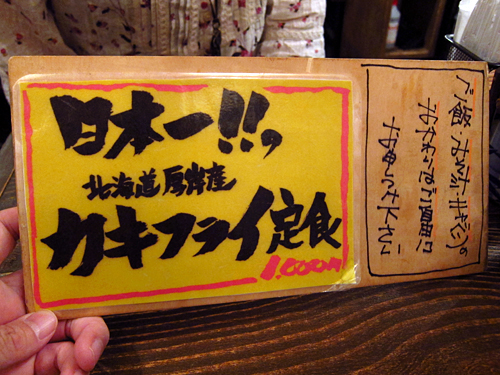 日本一!!の
北海道厚岸産
カキフライ定食
1,000円
(ご飯・みそ汁・キャベツ)の
おかわりはご自由に
お申しつけ下さい